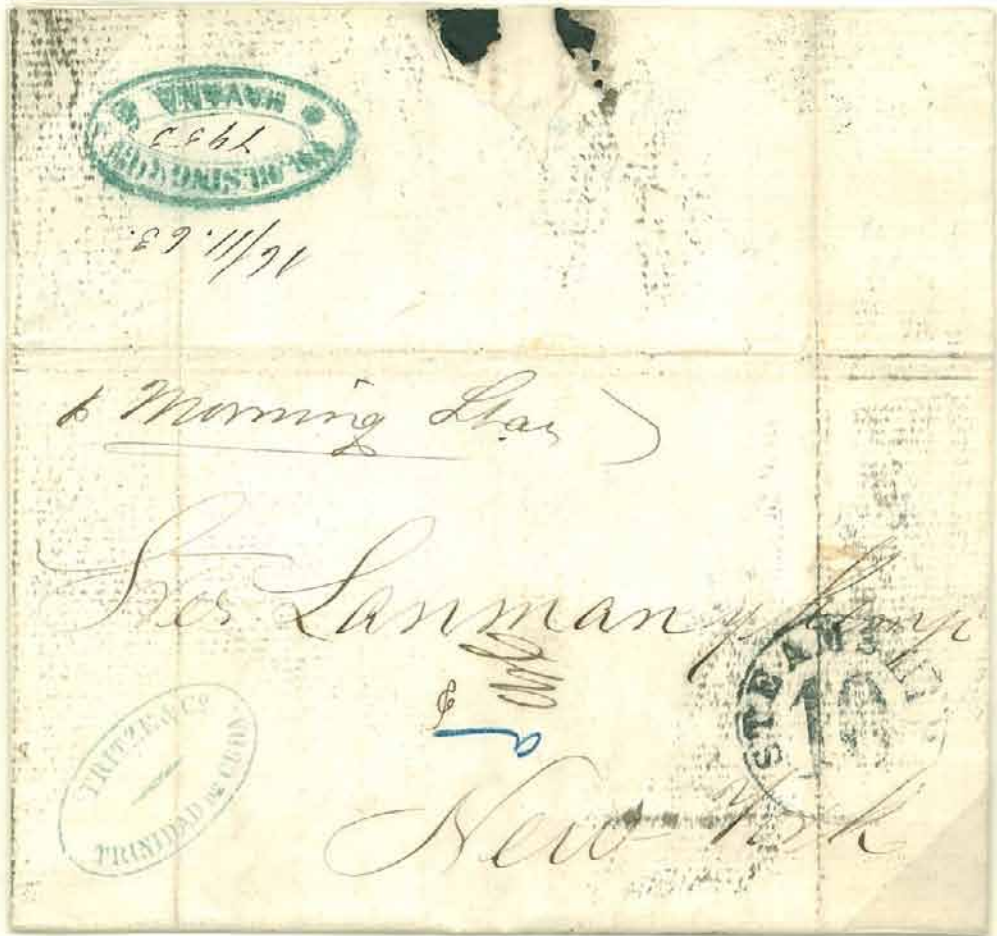 HAVANA
7953
16/11.63.
p Morning Star
Sres Lanman y Kemp
STEAMSHIP
10
a
FRITZE & Co
TRINIDAD DE CUBA
New-York